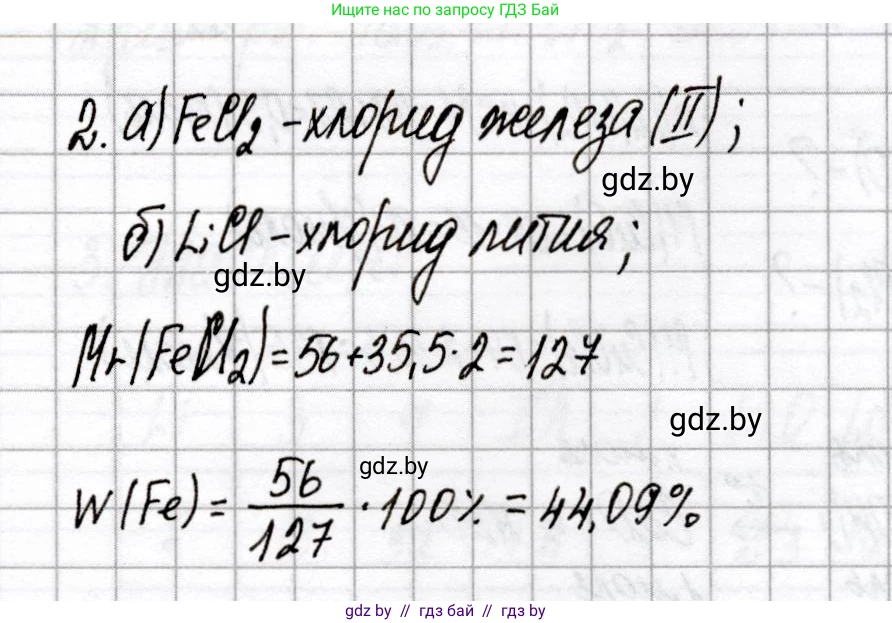 Ищите нас по запросу ГДЗ Бай
2. а) FeCl₂ – хлорид железа (II);
gdz.by
б) LiCl – хлорид лития;
gdz.by
Mr(FeCl₂) = 56 + 35,5 · 2 = 127
gdz.by
gdz.by
W(Fe) = 56/127 · 100% = 44,09%
gdz.by // гдз бай // гдз by